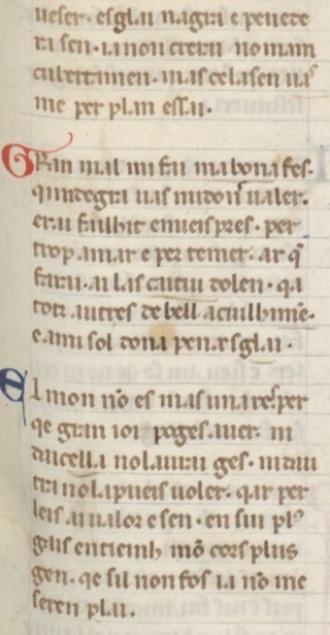 ueser. esglai nagra e penede
ra sen. ia non crerai nomam
cubertamen. mas celasen uas
me per plan essai.
GRan mal mi fai ma bona fes.
quimdegra uas midonſ ualer.
erai failhit e meis pres. per
trop amar e per temer. ar q̄
farai. ai las caitiu dolen. qa
totz autres de bell aciulhimē.
e ami sol dona pen esglai.
El mon nō es mas una res per
qe gran ioi poges auer. ni
daicella nolaurai ges. ni dau
tra nolapueis uoler. qar per
leis ai ualor e sen. en sui plꝰ
gais en tieinh mō cors plus
gen. qe sil non fos ia nō me
seren plai.